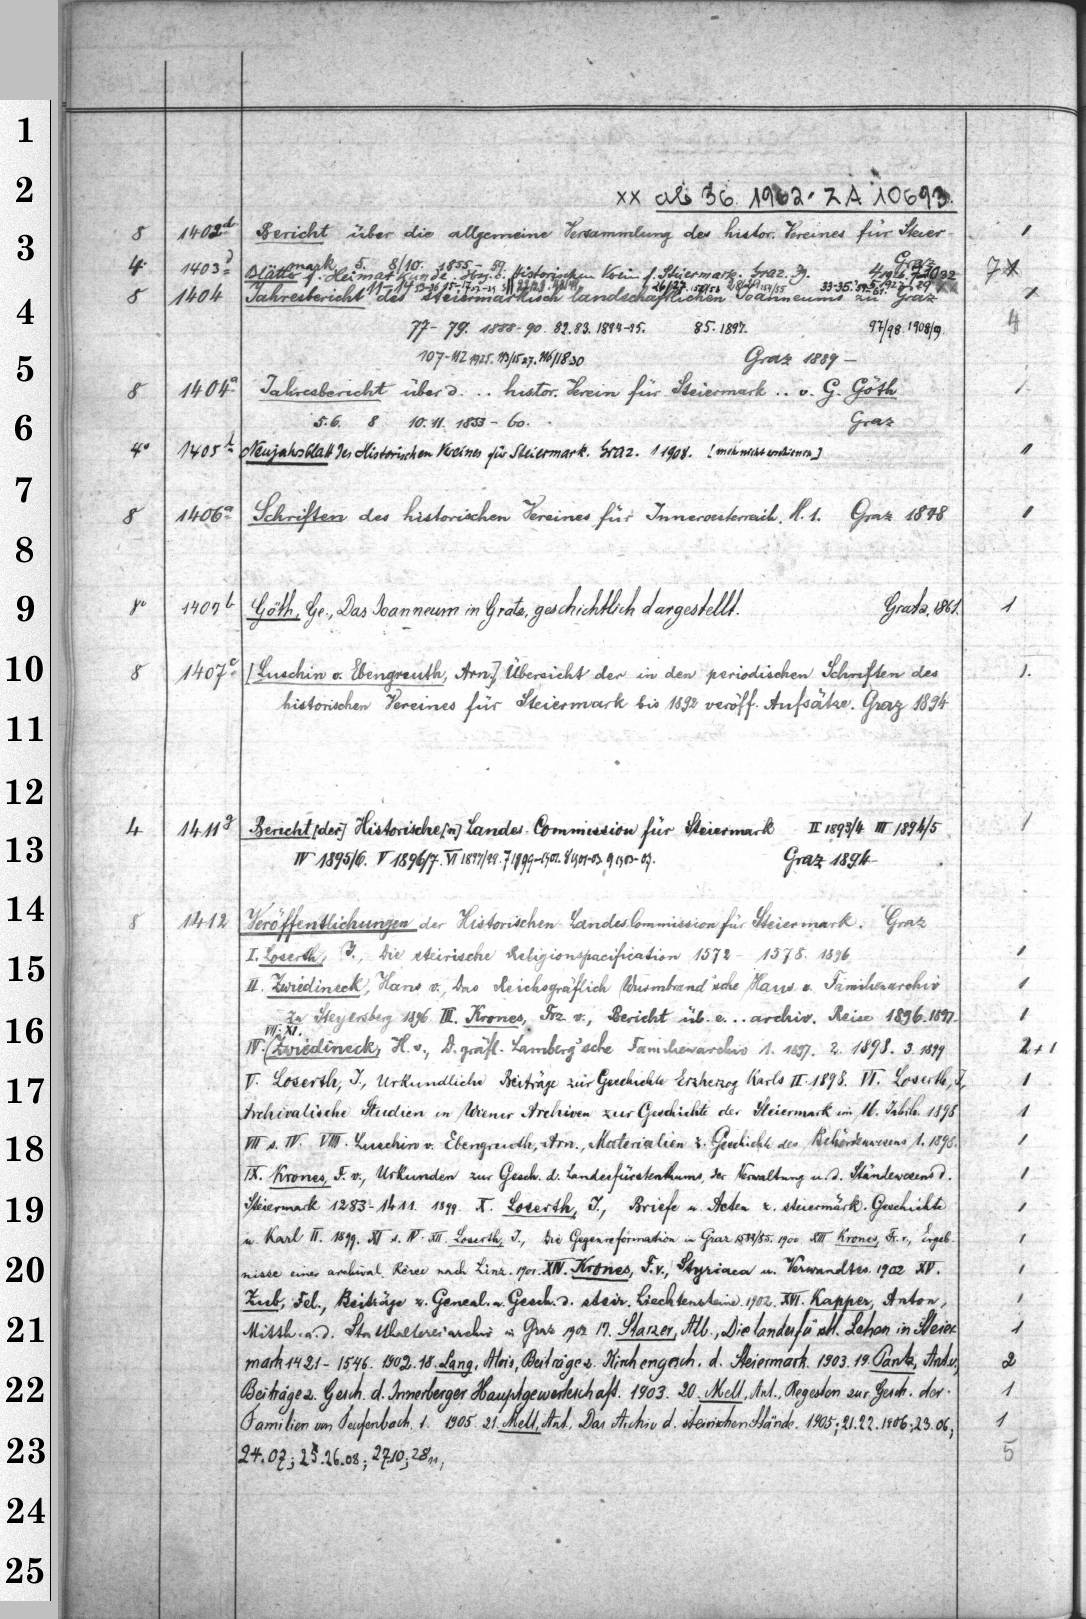 1
2
xx ab 36. 1962 · ZA 10693.
3
8 1402d Bericht über die allgemeine Versammlung des histor. Vereines für Steier- 1
mark 5. 8/10. 1855 - 59. Graz
4 1403 Blätter f. Heimatkunde. Hrsg. v. Historischen Verein f. Steiermark. Graz. 7
4
8 1404 Jahresbericht des steiermärkisch landschaftlichen Joanneums zu Graz 1
77 - 79. 1888 - 90. 82. 83. 1894-95. 85. 1897. 97/98. 1908/9. 4
5
107-112 1925. 113/15 27. 116/118 30 Graz 1889 -
8 1404a Jahresbericht über d. .. histor. Verein für Steiermark .. v. G. Göth 1
6
5.6. 8 10. 11. 1853 - 60. Graz
4° 1405b Neujahrsblatt des Historischen Vereines für Steiermark. Graz. 1 1908. 1
7
8 1406a Schriften des historischen Vereines für Inneroesterreich. H. 1. Graz 1848 1
8
9
8° 1407b Göth, Ge., Das Joanneum in Gratz, geschichtlich dargestellt. Gratz, 1861. 1
10
8 1407c [Luschin v. Ebengreuth, Arn.] Übersicht der in den periodischen Schriften des 1.
historischen Vereines für Steiermark bis 1892 veröff. Aufsätze. Graz 1894
11
12
4 1411g Bericht [der] Historische[n] Landes-Commission für Steiermark II 1893/4 III 1894/5 1
13
IV 1895/6. V 1896/7. VI 1897/99. 7 1899-1901. 8 1901-03. 9 1903-07. Graz 1894-
14
8 1412 Veröffentlichungen der Historischen Landes Commission für Steiermark. Graz
I. Loserth, J., Die steirische Religionspacification 1572 - 1578. 1896. 1
15
II. Zwiedineck, Hans v., Das Reichsgräflich Wurmbrand'sche Haus u. Familienarchiv 1
zu Steyersberg 1896. III. Krones, Frz v., Bericht üb. e. .. archiv. Reise 1896. 1897. 1
16
VII. XI.
IV. Zwiedineck, H. v., D. gräfl. Lamberg'sche Familienarchiv 1. 1897. 2. 1898. 3. 1899 2+1
17
V. Loserth, J., Urkundliche Beiträge zur Geschichte Erzherzog Karls II. 1898. VI. Loserth, J., 1
Archivalische Studien in Wiener Archiven zur Geschichte der Steiermark im 16. Jahrh. 1898 1
18
VII s. IV. VIII. Luschin v. Ebengreuth, Arn., Materialien z. Geschichte des Behördenwesens 1. 1898. 1
IX. Krones, F. v., Urkunden zur Gesch. d. Landesfürstenthums, der Verwaltung u. d. Ständewesens d. 1
19
Steiermark 1283-1411. 1899. X. Loserth, J., Briefe u. Acten z. steiermärk. Geschichte 1
u. Karl II. 1899. XI s. IV. XII. Loserth, J., Die Gegenreformation in Graz 1582/85. 1900. XIII Krones, Fr. v., Ergeb- 1
20
nisse einer archival. Reise nach Linz. 1901. XIV. Krones, F. v., Styriaca u. Verwandtes. 1902 XV. 1
Zub, Fel., Beiträge z. Geneal. u. Gesch. d. steir. Liechtensteine. 1902. XVI. Kapper, Anton, 1
21
Mitth. a. d. Statthaltereiarchiv in Graz 1902 17. Starzer, Alb., Die landesfürstl. Lehen in Steier- 1
mark 1421 - 1546. 1902. 18. Lang, Alois, Beiträge z. Kirchengesch. d. Steiermark. 1903. 19. Pantz, Ant. v, 2
22
Beiträge z. Gesch. d. Innerberger Hauptgewerkschaft. 1903. 20. Mell, Ant., Regesten zur Gesch. der 1
Familien von Teufenbach. 1. 1905. 21. Mell, Ant., Das Archiv d. steirischen Stände. 1905; 21. 22. 1906; 23. 06; 1
23
24. 07; 25. 26. 08; 27 10; 28 11, 5
24
25